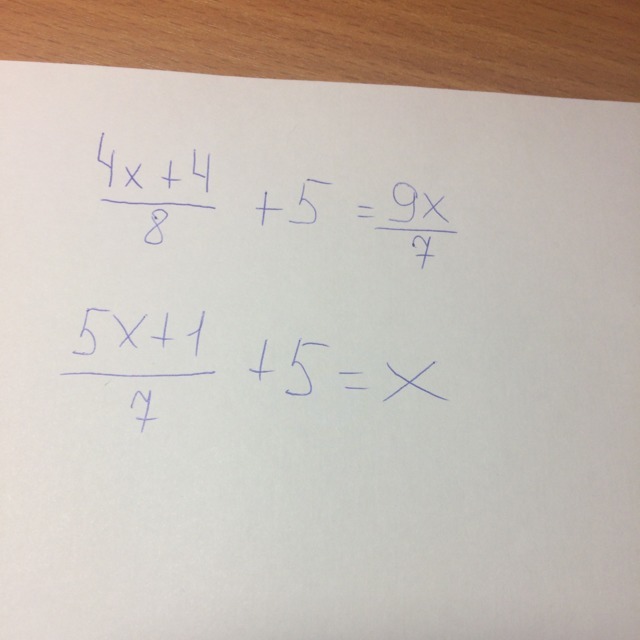 4x+4
8
+5=
9x
7
5x+1
7
+5=x